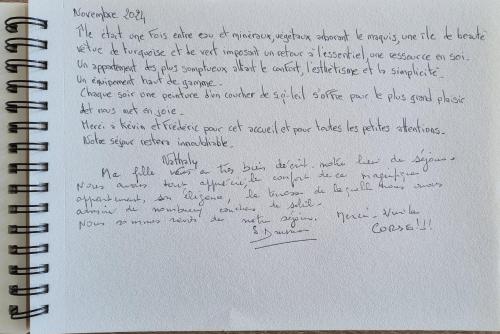 Novembre 2024
Il était une fois entre eau et minéraux, végétaux arborant le maquis, une île de beauté
vêtue de turquoise et de vert imposant un retour à l'essentiel, une ressource en soi.
Un appartement des plus somptueux alliant le confort, l'esthétisme et la simplicité.
Un équipement haut de gamme.
Chaque soir une peinture d'un coucher de soleil s'offre pour le plus grand plaisir
et nous met en joie.
Merci à Kévin et Frédéric pour cet accueil et pour toutes les petites attentions.
Notre séjour restera inoubliable.
Nathaly
Ma fille vous a très bien décrit notre lieu de séjour.
Nous avons tout apprécié, le confort de ce magnifique
appartement, son élégance, la terrasse de laquelle nous avons
admiré de nombreux couchers de soleil.
Nous sommes ravis de notre séjour. Merci - Vive la
CORSE !!!